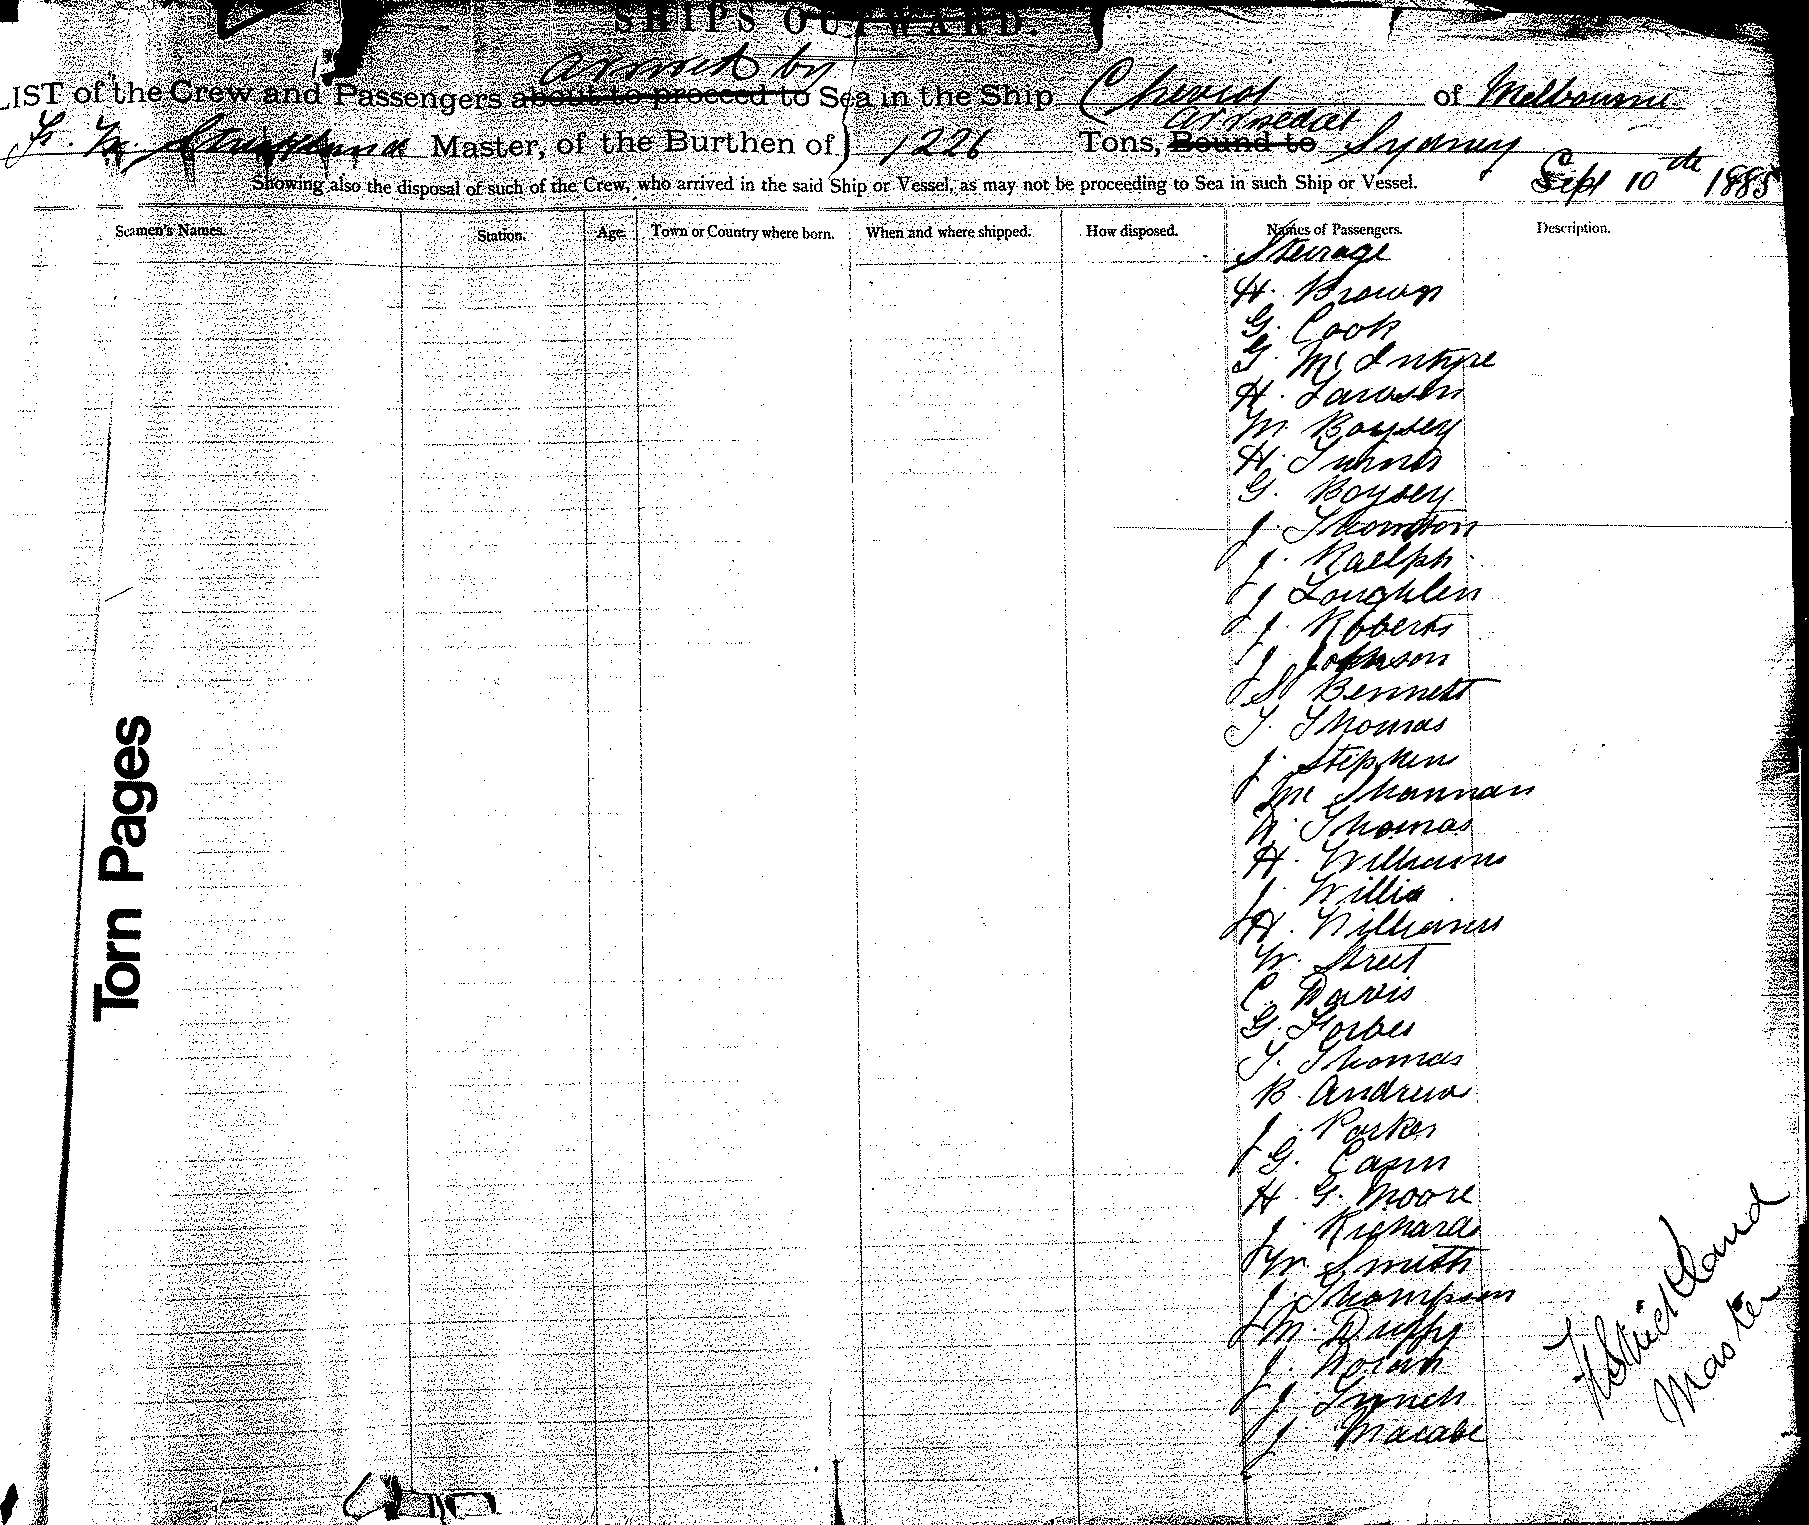 SHIPS OUTWARD.
arrived by
LIST of the Crew and Passengers about to proceed to Sea in the Ship Cheviot of Melbourne
arrived at
F. W. Strickland Master, of the Burthen of 1226 Tons, Bound to Sydney
Sept 10th 1885
Showing also the disposal of such of the Crew, who arrived in the said Ship or Vessel, as may not be proceeding to Sea in such Ship or Vessel.
Seamen's Names. Station. Age. Town or Country where born. When and where shipped. How disposed. Names of Passengers. Description.
Steerage
H. Brown
G. Cook
G. McIntyre
H. Lawson
M Boysey
H. Turner
G. Boysey
J. Thornton
J. Raelph
J Loughlen
J. Roberts
J. Johnson
S Bennett
T. Thomas
J. Stephens
Mc Shannan
W. Thomas
H. Williams
J. Willis
H. Williams
W. Street
C. Davis
G. Forbes
T. Thomas
B. Andrews
J. Parker
G. Cann
H. G. Moore
J. Richards
W. Smith
J. Thompson
M. Duffy
J. Nolan
J Lynch
J Macabe
Torn Pages
F W Strickland
Master